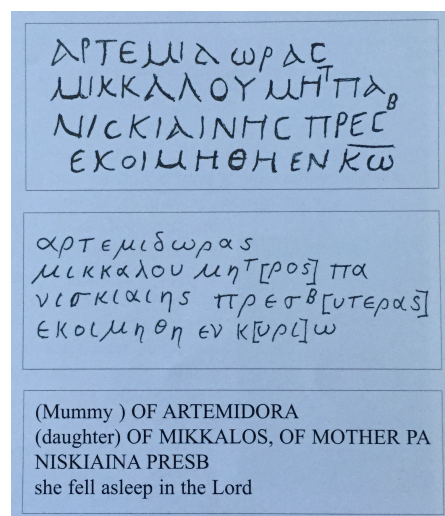 ΑΡΤΕΜΙΔωΡΑС
ΜΙΚΚΑΛΟΥ ΜΗᵀ ΠΑ
ΝΙСΚΙΑΙΝΗС ΠΡΕСᴮ
ΕΚΟΙΜΗΘΗ ΕΝ Κ̅ω̅
αρτεμιδωρας
μικκαλου μηᵀ[ρος] πα
νισκιαιης πρεσᴮ[υτερας]
εκοιμηθη εν κ[υρι]ω
(Mummy ) OF ARTEMIDORA
(daughter) OF MIKKALOS, OF MOTHER PA
NISKIAINA PRESB
she fell asleep in the Lord